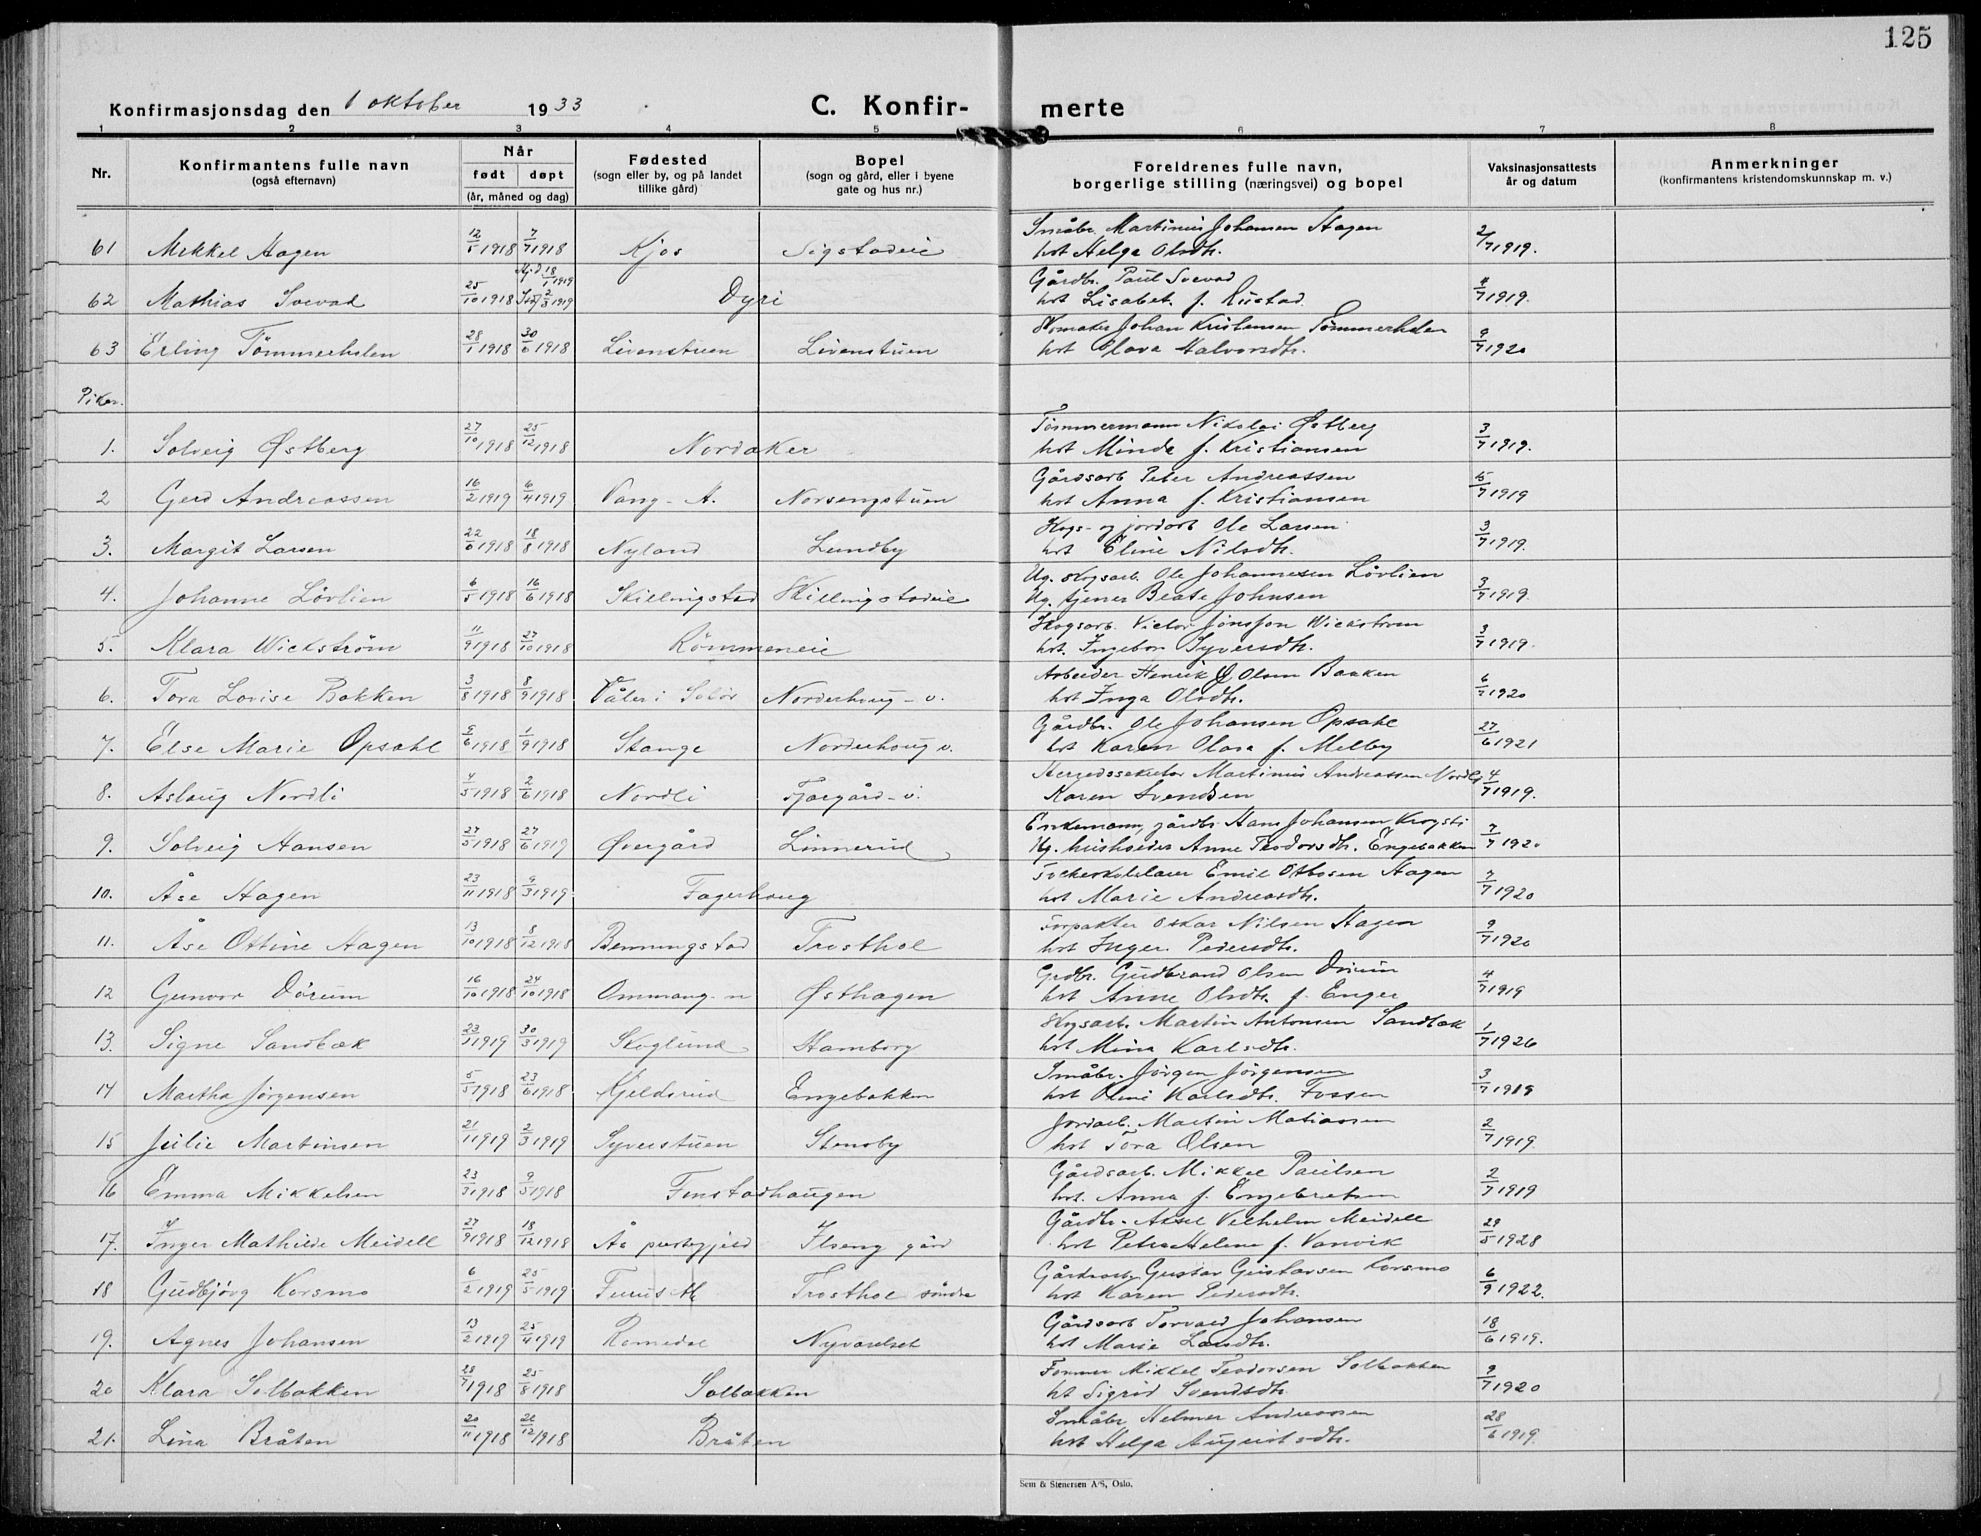 125
Konfirmasjonsdag den 1 oktober 1933
C. Konfir- merte
1 2 3 4 5 6 7 8
Nr.
Konfirmantens fulle navn
(også efternavn)
Når
født døpt
(år, måned og dag)
Fødested
(sogn eller by, og på landet
tillike gård)
Bopel
(sogn og gård, eller i byene
gate og hus nr.)
Foreldrenes fulle navn,
borgerlige stilling (næringsvei) og bopel
Vaksinasjonsattests
år og datum
Anmerkninger
(konfirmantens kristendomskunnskap m. v.)
Småbr. Martinius Johansen Hagen
61 Mikkel Hagen 12/5 1918 7/7 1918 Kjos Sigstadeie hst Helga Olsdtr. 2/7 1919.
Gårdbr. Paul Svevad
62 Mathias Svevad 25/10 1918 Hjd 18/1 1919 2/3 1919 Dyri hst Lisabet f. Rustad 1919.
Johan Kristensen Tømmerholen
63 Erling Tømmerholen 28/1 1918 30/6 1918 Livenstuen Livenstuen hst Olava Halvorsdtr. 9/7 1920
Piker.
Tømmermann Nikolai Østberg
1. Solveig Østberg 27/10 1918 25/12 1918 Nordaker hst Minda f. Kristiansen 3/7 1919.
Gårdsarb Peter Andreassen
2 Gerd Andreassen 16/2 1919 6/4 1919 Vang - H. Norsengstuen hst Anna f. Kristiansen 5/7 1919
Skogs- og jordarb Ole Larsen
3. Margit Larsen 22/6 1918 18/8 1918 Nyland Lundby hst Eline Nilsdtr. 3/7 1919.
Ug. skogsarb. Ole Johannesen Løvlien
4. Johanne Løvlien 6/5 1918 16/6 1918 Skillingstad Skillingstadeie Ug. tjener Beate Johnsen 3/7 1919.
Skogsarb. Victor Jonsson Wickstrøm
5. Klara Wickstrøm 11/9 1918 27/10 1918 Rømmeneie hst. Ingebor Syversdtr. 3/7 1919.
Arbeider Henrik O Olsen Bakken
6. Tora Lovise Bakken 3/8 1918 8/9 1918 Våler i Solør Norderhoug - v. hst Inga Olsdtr. 6/7 1920
Gårdbr. Ole Johansen Opsahl
7. Else Marie Opsahl 9/6 1918 1/9 1918 Stange Norderhoug v. hst Karen Olava f. Melby 27/6 1921
Herredssekretær Martinius Andreassen Nordli
8. Aslaug Nordli 4/5 1918 2/6 1918 Nordli Tjærgård - v. Karen Svendsen 4/7 1919.
Enkemann, gårdbr. Hans Johansen Krogsti
9. Solveig Hansen 27/5 1918 27/6 1919 Øvergård Linnerud Ug. husholder Anne Teodorsdtr. Engebakken 7/7 1920
Emil Ottosen Hagen
10. Åse Hagen 23/11 1918 9/3 1919. Fagerhoug hst Marie Andreasdtr. 7/7 1920
Forpakter Oskar Nilsen Hagen
11. Åse Ottine Hagen 13/10 1918 8/12 1918 Benningstad Trosthol hst Inger Pedersdtr. 9/7 1920
Grdbr. Gudbrand Olsen Dørum
12 Gunvor Dørum 16/10 1918 24/10 1918 Ommang - n Østhagen hst Anne Olsdtr. f. Enger 4/7 1919
Skogsarb. Martin Antonsen Sandbæk
13. Signe Sandbæk 23/1 1919 30/3 1919 Skoglund Hamborg hst Mina Karlsdtr. 1/7 1926
Småbr. Jørgen Jørgensen
14 Martha Jørgensen 5/5 1918 23/6 1918 Kjeldsrud Engebakken hst Oline Karlsdtr. Fossen 3/7 1919
Jordarb. Martin Matiassen
15 Julie Martinsen 21/1 1919 2/3 1919 Syverstuen Stensby hst Tora Olsen 2/7 1919.
Gårdsarb. Mikkel Paulsen
16 Emma Mikkelsen 23/3 1918 9/5 1918 Finstadhaugen hst. Anna f. Engebretsen 2/7 1919
Gårdbr. Aksel Vilhelm Meidell
17. Inger Mathilde Meidell 27/9 1918 18/12 1918 Ås prestegjeld Ilseng gård hst Petra Helene f. Vanvik 29/5 1928
Gårdsarb. Gustav Gustavsen Korsmo
18 Gudbjørg Korsmo 6/2 1919 25/5 1919 Furuseth Trosthol søndre hst Karen Pedersdtr. 6/9 1922.
Gårdsarb Torvald Johansen
19. Agnes Johansen 13/2 1919 25/4 1919 Romedal Nyvarelset hst Marie Larsdtr. 18/6 1919.
Mikkel Teodorsen Solbakken
20 Klara Solbakken 28/7 1918 25/8 1918 Solbakken hst Sigrid Svendsdtr. 9/7 1920
Småbr Helmer Andreassen
21. Lina Bråten 20/11 1918 26/12 1918 Bråten hst Helga Augustsdtr. 28/6 1919.
Sem & Stenersen A/S, Oslo.